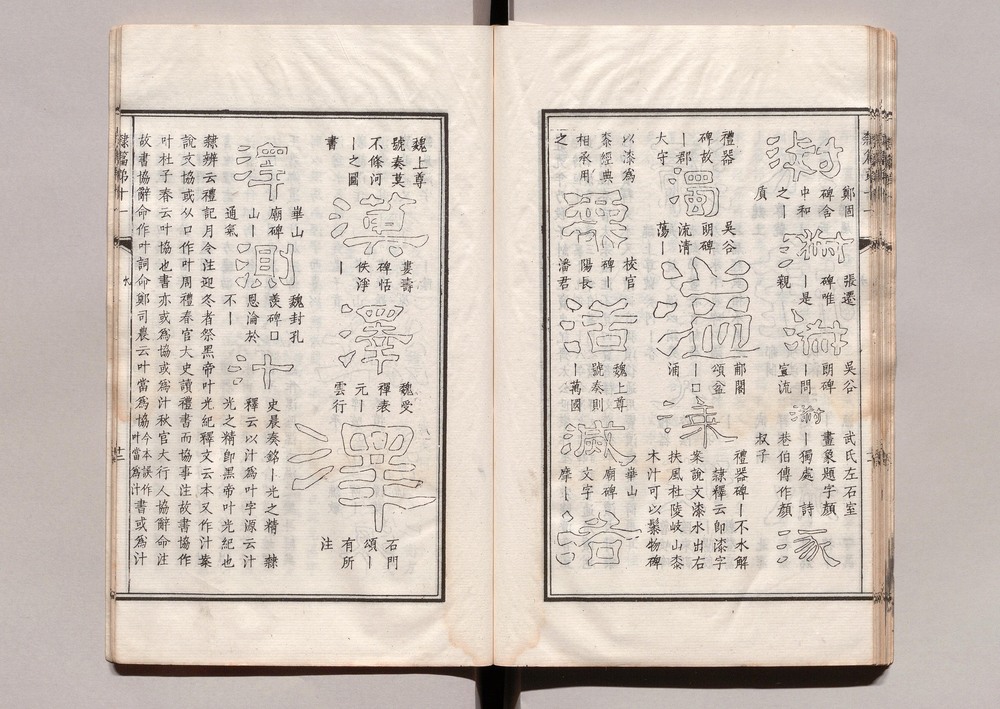 淑
鄭固
碑含
中和
之丨
質
淑
張遷
碑唯
丨是
親
淑
吳谷
朗碑
丨問
宣流
淑
武氏左石室
畫象題字顏
丨獨處 詩
巷伯傅作顏
叔子
涿
禮器
碑故
丨郡
大守
濁
吳谷
朗碑
流清
蕩丨
溢
郙閣
頌盆
丨口
涌
漆
禮器碑丨不水解
隸釋云即漆字
案說文漆水出右
扶風杜陵岐山桼
木汁可以髹物碑
以漆為
桼經典
相承用
之
溧
校官
碑丨
陽長
潘君
活
魏上尊
號奏則
丨萬國
滅
華山
廟碑
文字
靡丨
洛
魏上尊
號奏莫
不條河
丨之圖
書
漠
婁壽
碑恬
佚淨
丨
澤
魏受
禪表
元丨
雲行
澤
石門
頌丨
有所
注
澤
華山
廟碑
山丨
通氣
測
魏封孔
羨碑口
恩淪於
不丨
汁
史晨奏銘丨光之精 隸
釋云以汁為叶字源云汁
光之精即黑帝叶光紀也
隸辨云禮記月令注迎冬者祭黑帝叶光紀釋文云本又作汁案
說文協或从口作叶周禮春官大史讀禮書而協事注故書協作
叶杜子春云叶協也書亦或為協或為汁秋官大行人協辭命注
故書協辭命作叶詞命鄭司農云叶當為協今本誤作叶當為汁書或為汁